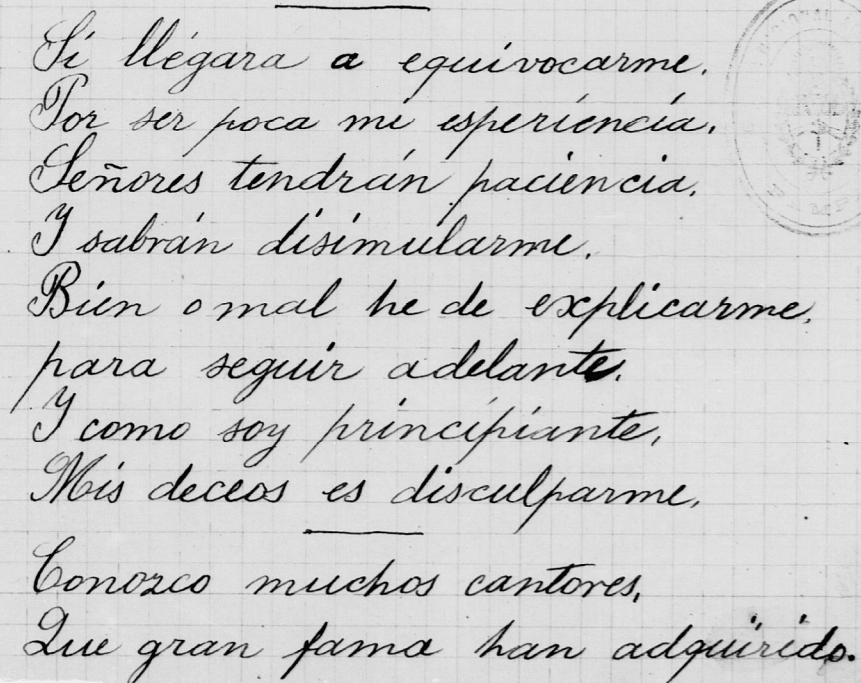 Sí llégara a equivocarme.
Por ser poca mi esperiencia.
Señores tendrán paciencia.
Y sabrán disimularme.
Bien o mal he de explicarme.
para seguir adelante.
Y como soy principiante,
Mis deceos es disculparme.
Conozco muchos cantores,
Que gran fama han adquirido.